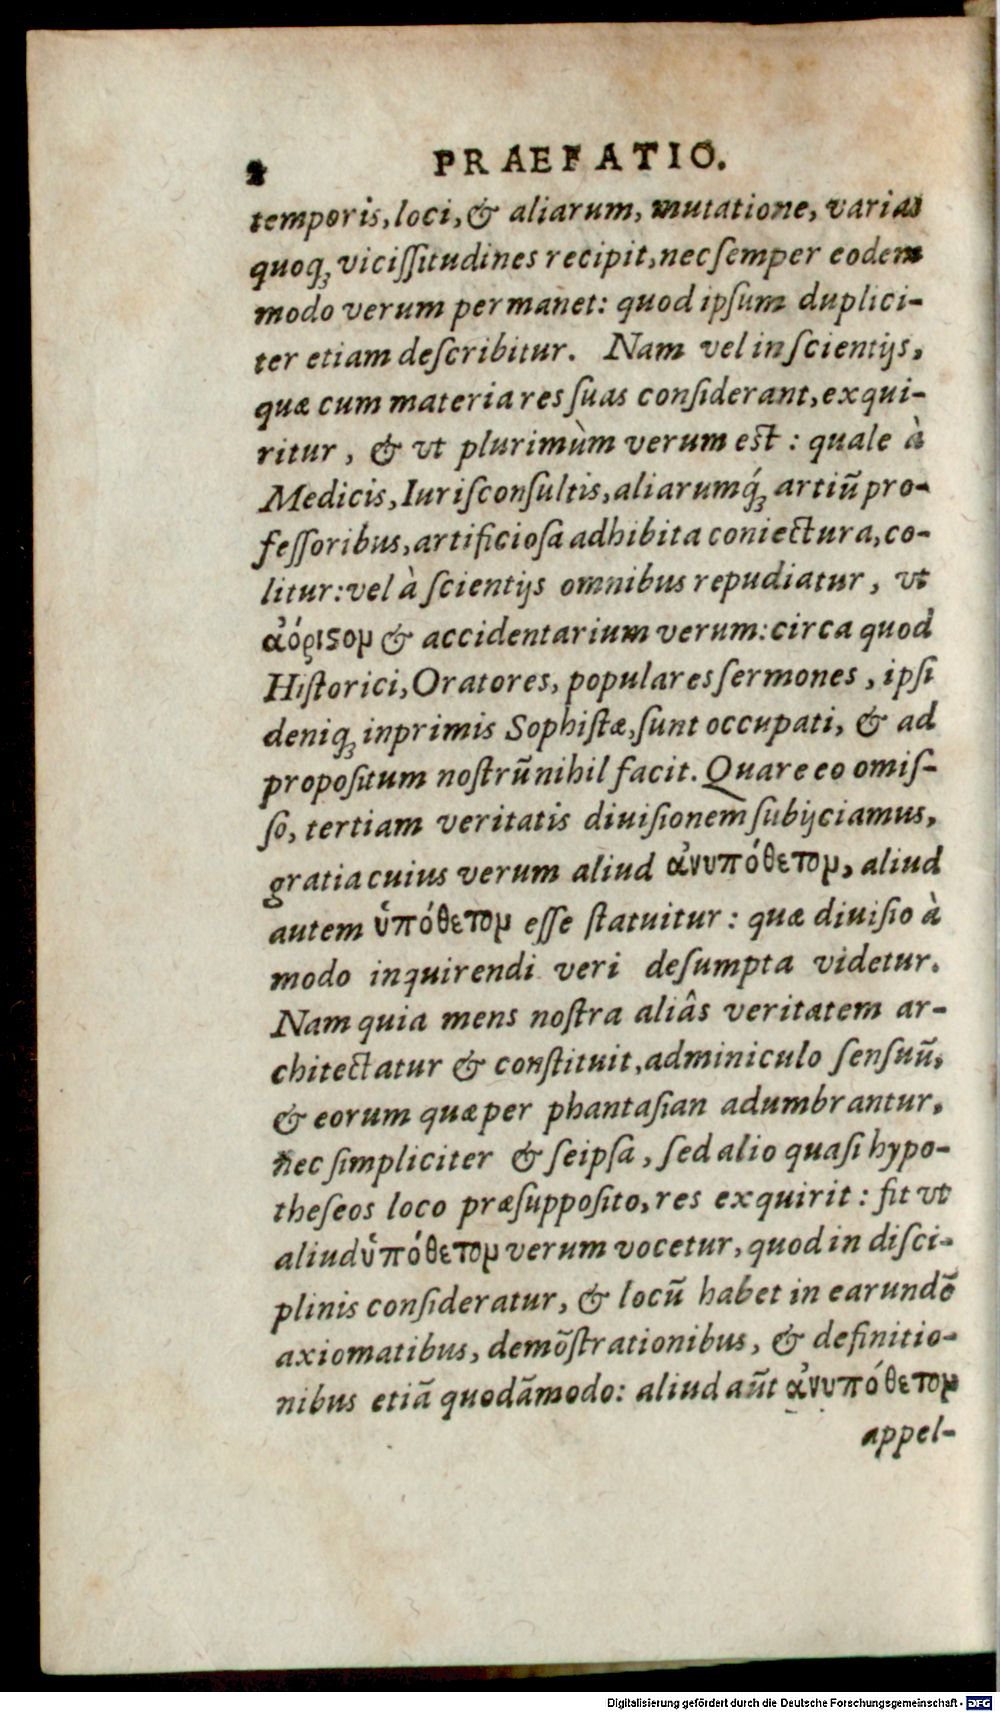 2 PRAEFATIO.
temporis, loci, & aliarum, mutatione, varias
quoq́ꝫ viciſſitudines recipit, nec ſemper eodem
modo verum permanet: quod ipſum duplici-
ter etiam deſcribitur. Nam vel in ſcientijs,
quæ cum materia res ſuas conſiderant, exqui-
ritur, & vt plurimùm verum est: quale à
Medicis, Iuriſconſultis, aliarumq́ꝫ artiũ pro-
feſſoribus, artificioſa adhibita coniectura, co-
litur: vel à ſcientijs omnibus repudiatur, vt
ἀόριϛομ & accidentarium verum: circa quod
Hiſtorici, Oratores, populares ſermones, ipſi
deniqꝫ inprimis Sophiſtæ, ſunt occupati, & ad
propoſitum noſtrũ nihil facit. Quare eo omiſ-
ſo, tertiam veritatis diuiſionem ſubijciamus,
gratia cuius verum aliud ἀνυπόθετομ, aliud
autem ὑπόθετομ eſſe ſtatuitur: quæ diuiſio à
modo inquirendi veri deſumpta videtur.
Nam quia mens noſtra aliâs veritatem ar-
chitectatur & conſtituit, adminiculo ſenſuũ,
& eorum quæ per phantaſian adumbrantur,
nec ſimpliciter & ſeipſa, ſed alio quaſi hypo-
theſeos loco præſuppoſito, res exquirit: fit vt
aliud ὑπόθετομ verum vocetur, quod in diſci-
plinis conſideratur, & locũ habet in earundẽ
axiomatibus, demõſtrationibus, & definitio-
nibus etiã quodãmodo: aliud aũt ἀνυπόθετομ
appel-
Digitalisierung gefördert durch die Deutsche Forschungsgemeinschaft - DFG